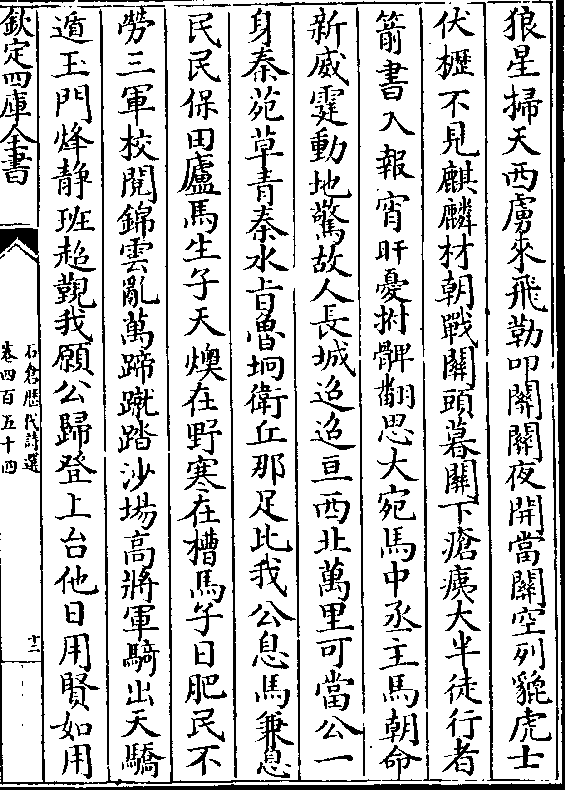 狼星掃天西虜來飛勒叩關關夜開當關空列貔虎士
伏櫪不見麒麟材朝戰關頭暮關下瘡痍大半徒行者
箭書入報宵旰憂拊髀翻思大宛馬中丞主馬朝命
新威霆動地驚故人長城迢迢亘西北萬里可當公一
身秦苑草青秦水香魯坰衛丘那足比我公息馬兼息
民民保田廬馬生子天燠在野寒在槽馬子日肥民不
勞三軍校閱錦雲亂萬蹄蹴踏沙場高將軍騎出天驕
遁玉門烽静班超覲我願公歸登上台他日用賢如用
欽定四庫全書
石倉歷代詩選
卷四百五十四
十二